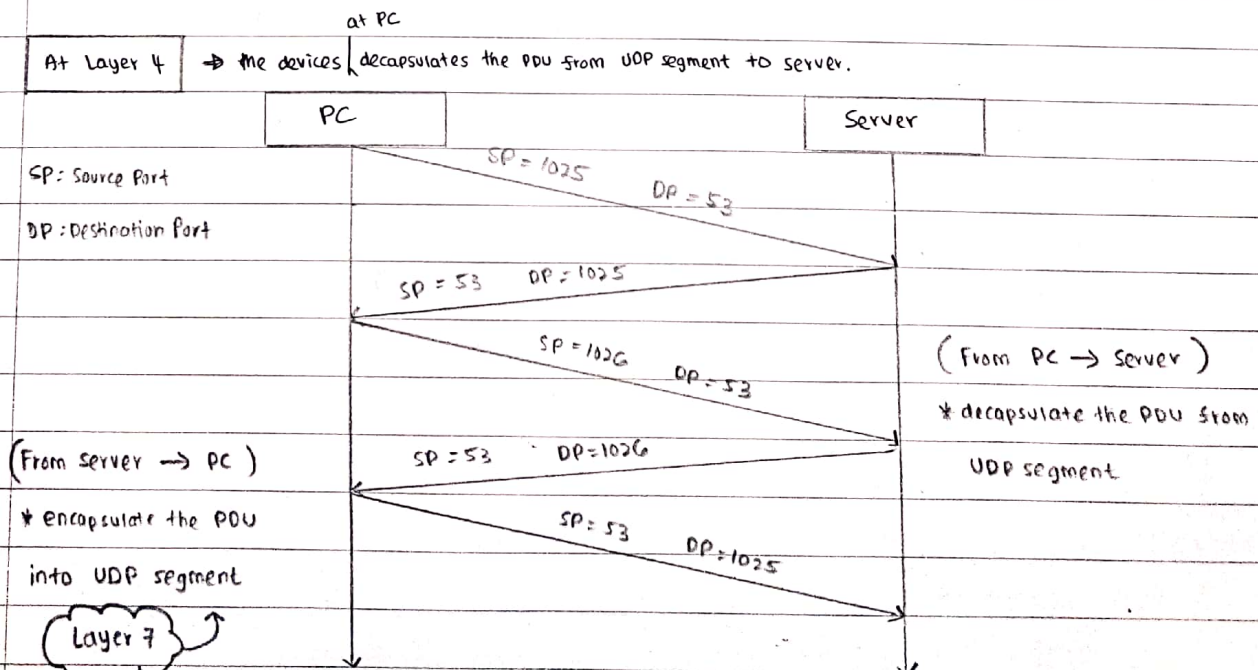 at PC
At Layer 4 → the devices decapsulates the PDU from UDP segment to server.
PC
Server
SP = 1025 DP = 53
SP: Source Port
DP: Destination Port
SP = 53 DP = 1025
SP = 1026 DP = 53
(From PC → Server)
* decapsulate the PDU from
UDP segment
(From server → PC)
SP = 53 DP = 1026
* encapsulate the PDU
into UDP segment
SP = 53 DP = 1025
Layer 7